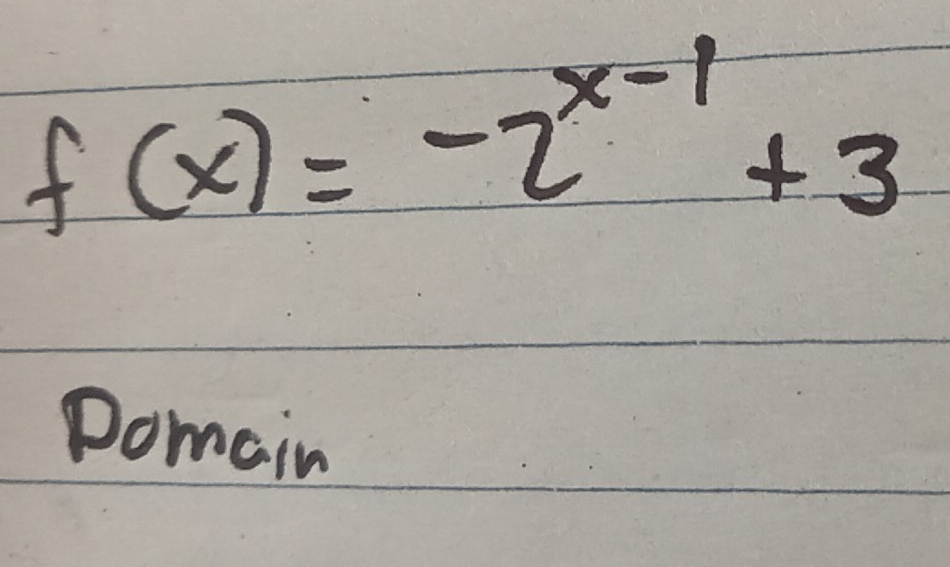 f(x) = -2^{x-1} + 3
Domain